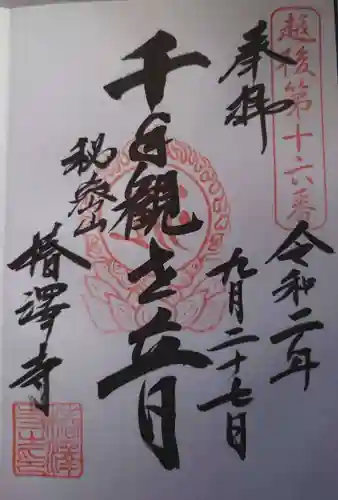 越後第十六番
奉拝
令和二年
九月二十七日
千手観世音
秘密山
椿澤寺